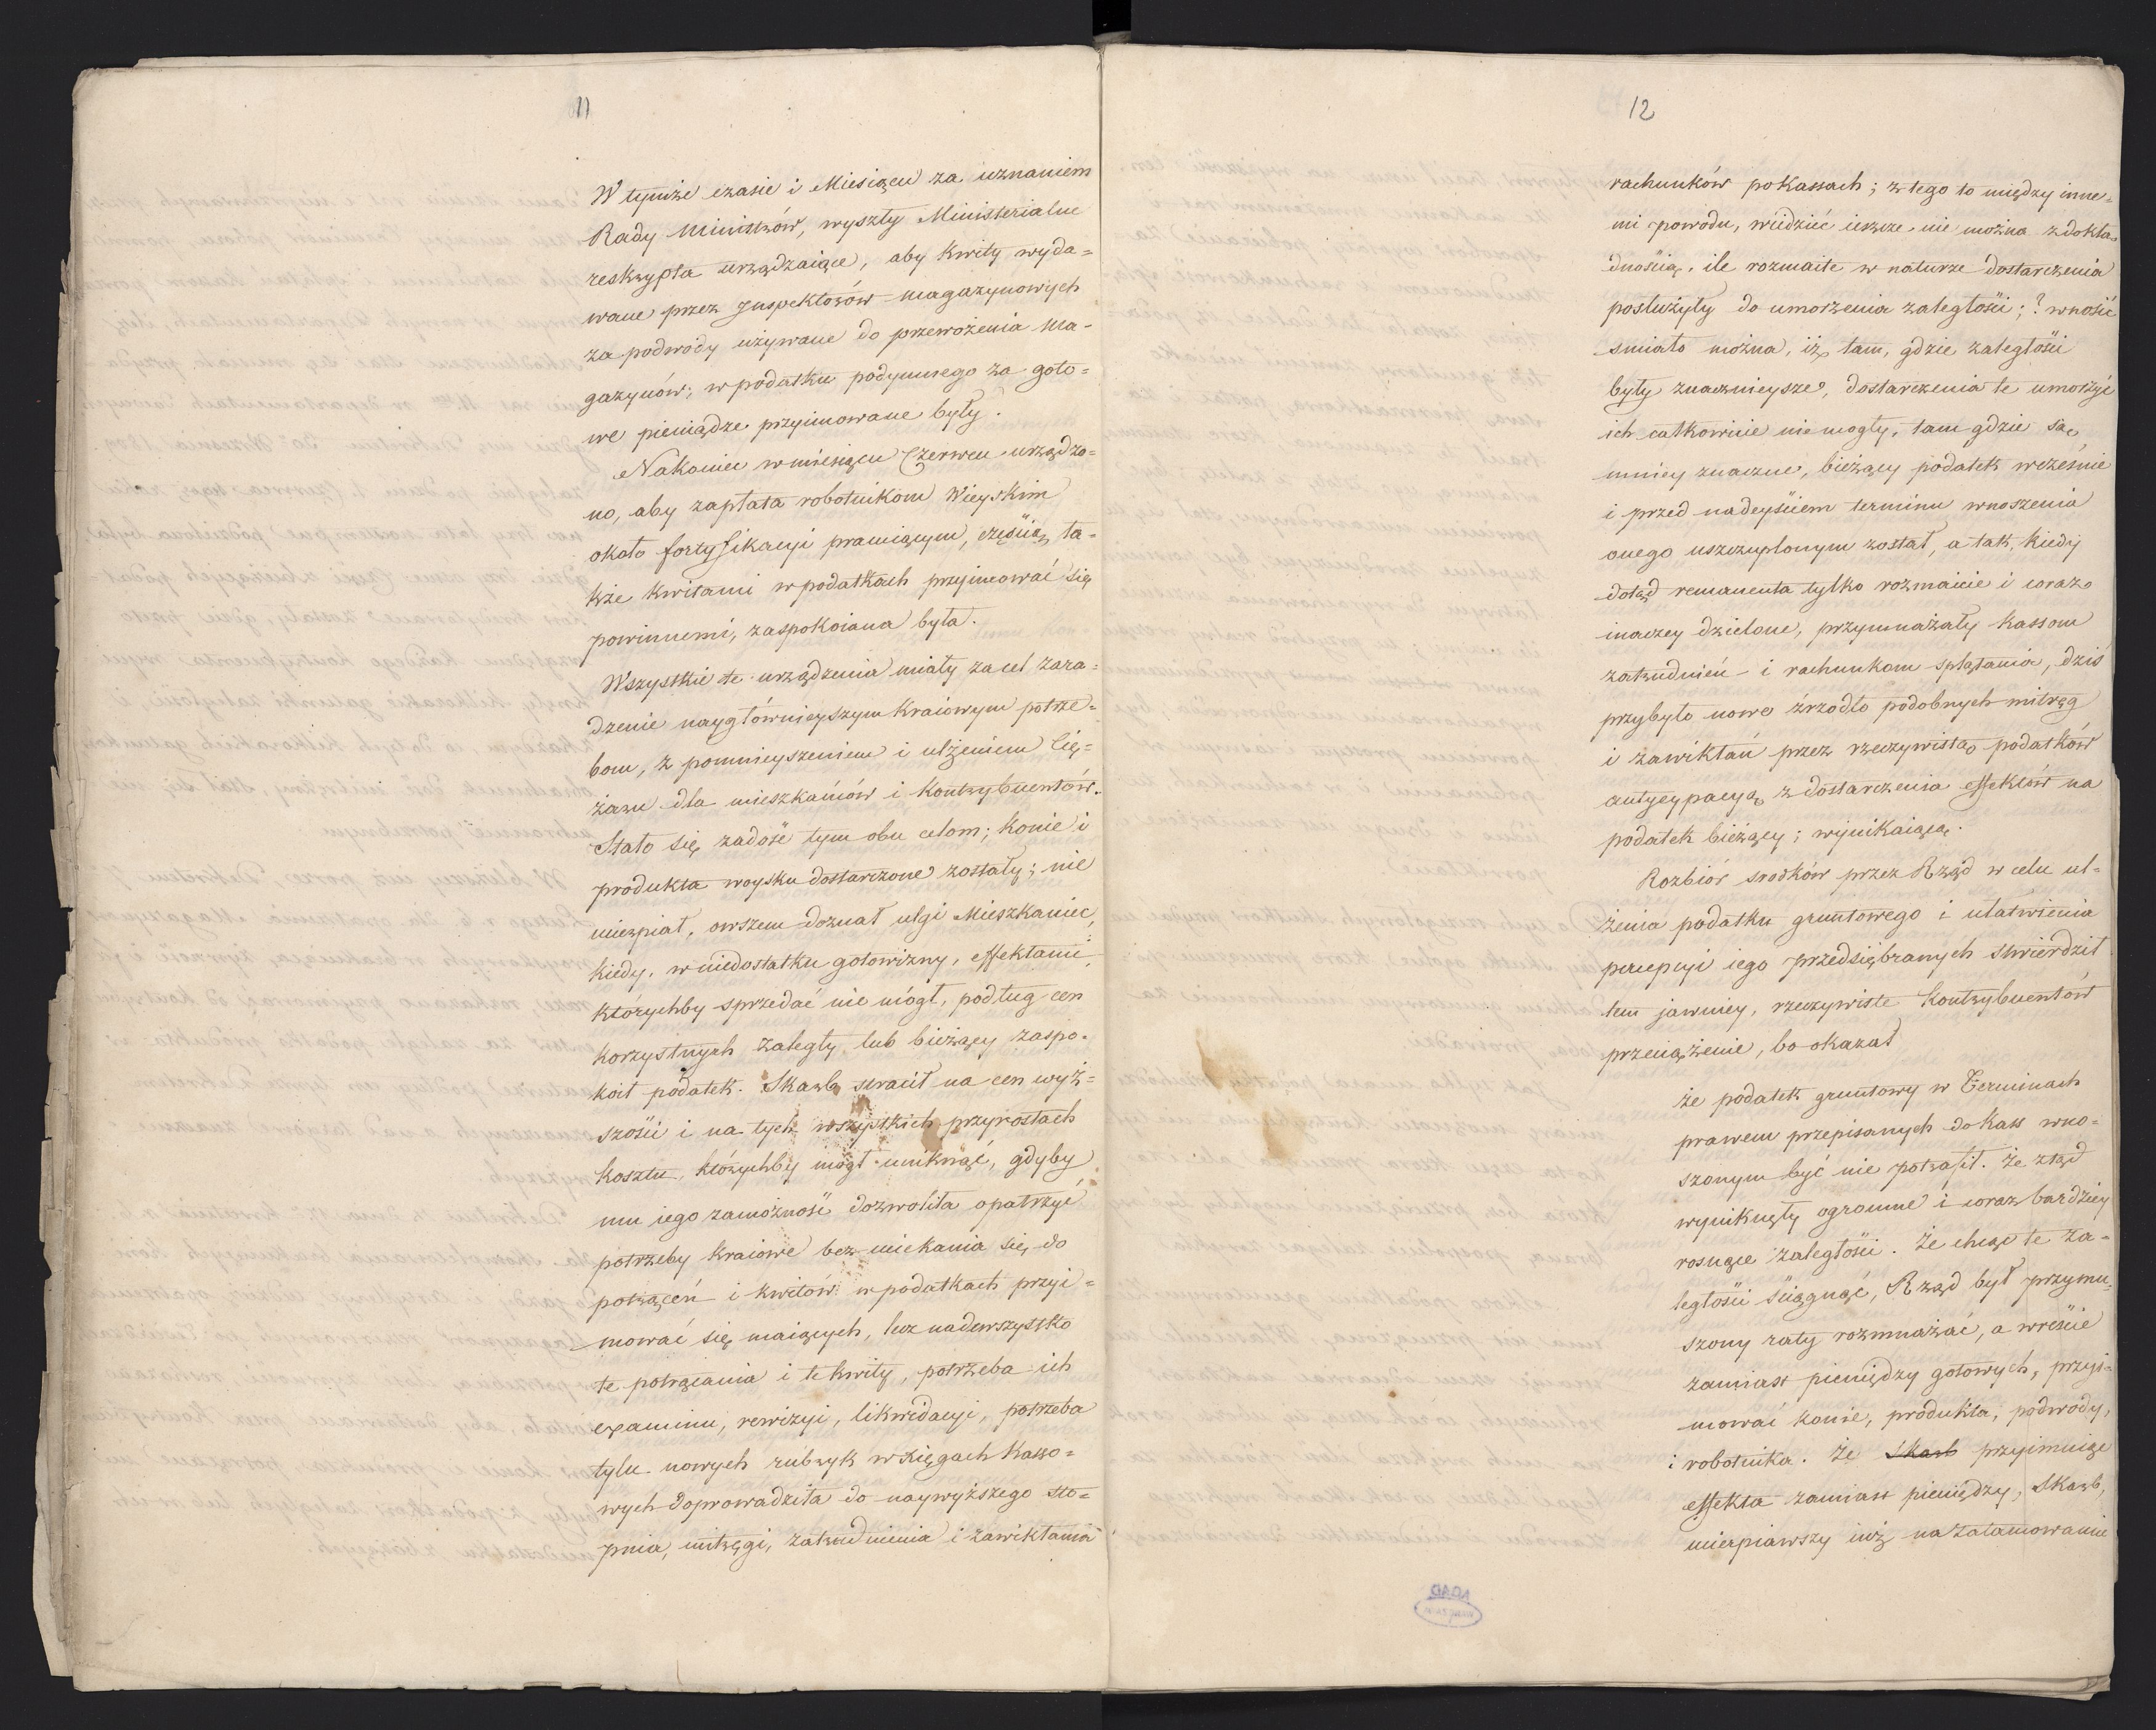 11
W tymże czasie i Miesiącu za uznaniem
Rady Ministrów, wyszły Ministerialne
reskrypta urządzaiące, aby kwity wyda=
wane przez Inspektorów magazynowych
za podwody używane do przewożenia ma-
gazynów; w podatku podymnego za goto=
we pieniądze przyimowane były.
Nakoniec w miesiącu Czerwcu urządzo=
no, aby zapłata robotnikom Wieyskim
około fortyfikacyi pracuiącym, częścią ta-
kże kwitami w podatkach przyimować się
powinnemi, zaspokoiana była.
Wszystkie te urządzenia miały za cel zara=
dzenie naygłównieyszym kraiowym potrze=
bom, z pomnieyszeniem i ulżeniem Cię=
żaru dla mieszkańców i kontrybuentów.
Stało się zadość tym obu celom; konie i
produkta woysku dostarczone zostały; nie
ucierpiał, owszem doznał ulgi Mieszkaniec,
kiedy, w niedostatku gotowizny, effektami,
którychby sprzedać nie mógł, podług cen
korzystnych zaległy lub bieżący zaspo-
koił podatek. Skarb stracił na cen wyż=
szości i na tych wszystkich przyrostach
kosztu, którychby mógł uniknąć, gdyby
mu iego zamożność dozwoliła opatrzyć
potrzeby kraiowe bez uciekania się do
potrąceń i kwitów w podatkach przyi=
mować się maiących, lecz nadewszystko
te potrącania i te kwity, potrzeba ich
examinu, rewizyi, likwidacyi, potrzeba
tylu nowych rubryk w Xięgach kasso=
wych doprowadziła do naywyższego sto=
pnia, mitręgi, zatrudnienia i zawikłania
12
rachunków po Kassach; z tego to między inne=
mi powodu, wiedzieć ieszcze nie można z dokła
dnością, ile rozmaite w naturze dostarczenia
posłużyły do umorzenia zaległości; ? wnosić
smiało można, iż tam, gdzie zaległości
były znacznieysze, dostarczenia te umorzyć
ich całkowicie nie mogły, tam gdzie są
mniey znaczne, bieżący podatek wcześnie
i przed nadeyściem terminu wnoszenia
onego uszczuplonym został, a tak, kiedy
dotąd remanenta tylko rozmaicie i coraz
inaczey dzielone, przymnażały kassom
zatrudnień i rachunkom splątania, dziś
przybyło nowe źrzodło podobnych mitręg
i zawikłań przez rzeczywistą podatków
antycypacyą z dostarczenia effektów na
podatek bieżący; wynikaiącą.
Rozbiór srodków przez Rząd w celu ul-
żenia podatku gruntowego i ułatwienia
percepcyi iego przedsiębranych stwierdził
tem jawniey, rzeczywiste kontrybuentów
przeciążenie, bo okazał
że podatek gruntowy w Terminach
prawem przepisanych do Kass wno=
szonym być nie potrafił. że ztąd
wyniknęły ogromne i coraz bardziey
rosnące zaległości. że chcąc te za=
ległości ściągnąć, Rząd był przymu=
szony raty rozmnażać, a wreście
zamiast pieniędzy gotowych, przyi=
mować konie, produkta, podwody,
i robotnika. że Skarb przyimuiąc
effekta zamiast pieniędzy, Skarb,
ucierpiawszy iuż na zatamowanie